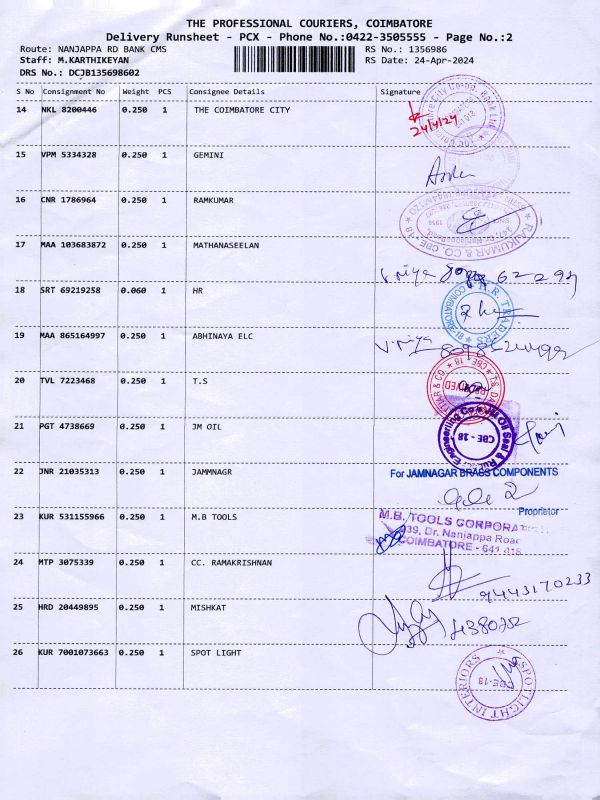 THE PROFESSIONAL COURIERS, COIMBATORE
Delivery Runsheet - PCX - Phone No.:0422-3505555 - Page No.:2
Route: NANJAPPA RD BANK CMS RS No.: 1356986
Staff: M.KARTHIKEYAN RS Date: 24-Apr-2024
DRS No.: DCJB135698602
S No Consignment No Weight PCS Consignee Details Signature
14 NKL 8200446 0.250 1 THE COIMBATORE CITY
24/4/24
15 VPM 5334328 0.250 1 GEMINI
16 CNR 1786964 0.250 1 RAMKUMAR
RAMKUMAR & CO. CBE 18
17 MAA 103683872 0.250 1 MATHANASEELAN
18 SRT 69219258 0.060 1 HR
H.R. TRADERS
COIMBATORE-18
19 MAA 865164997 0.250 1 ABHINAYA ELC
20 TVL 7223468 0.250 1 T.S
21 PGT 4738669 0.250 1 JM OIL
CBE - 18
22 JNR 21035313 0.250 1 JAMMNAGR
For JAMNAGAR BRASS COMPONENTS
Proprietor
23 KUR 531155966 0.250 1 M.B TOOLS
M.B. TOOLS
Dr. Nanjappa Road
COIMBATORE - 641 018
24 MTP 3075339 0.250 1 CC. RAMAKRISHNAN
9443170233
25 HRD 20449895 0.250 1 MISHKAT
26 KUR 7001073663 0.250 1 SPOT LIGHT
SPOTLIGHT INTERIORS
CBE-18